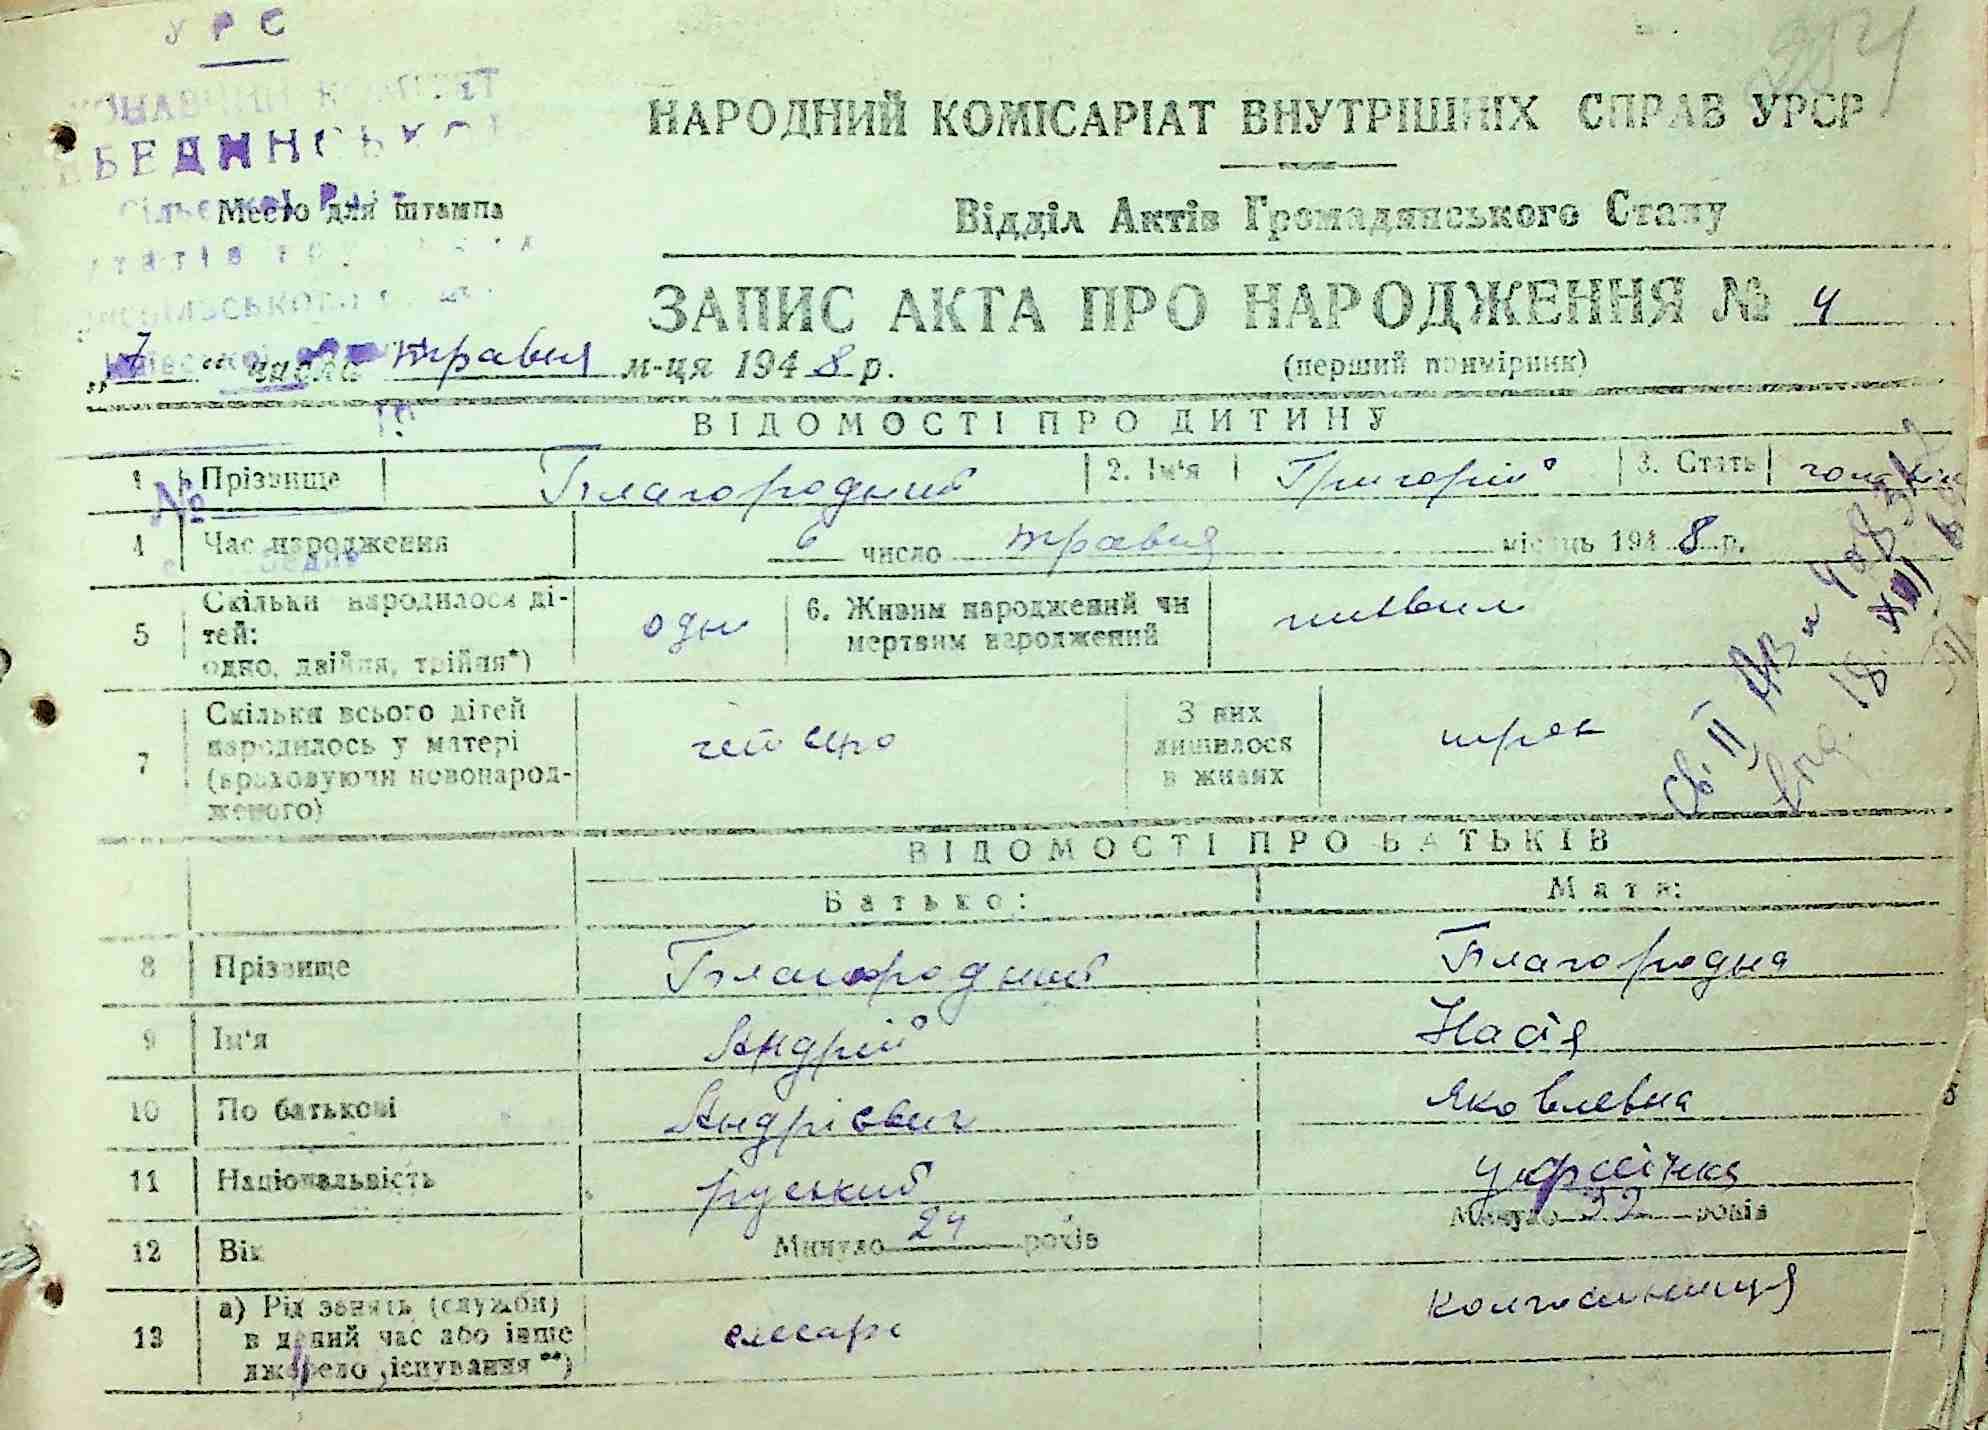 УРС
284
НАРОДНИЙ КОМІСАРІАТ ВНУТРІШНІХ СПРАВ УРСР
БЕДИНСЬКО
Место для штампа
Відділ Актів Громадянського Стану
ЗАПИС АКТА ПРО НАРОДЖЕННЯ № 4
(перший примірник)
„7“ числа травня м-ця 1948 р.
ВІДОМОСТІ ПРО ДИТИНУ
1 Прізвище Благородний 2. Ім'я Григорій 3. Стать
№
4 Час народження 6 число травня місяць 1948 р.
5 Скільки народилося дітей: одно, двійня, трійня*) одно 6. Живим народжений чи мертвим народжений живим
7 Скільки всього дітей народилось у матері (враховуючи новонародженого) четверо З них лишилося в живих троє
ВІДОМОСТІ ПРО БАТЬКІВ
Батько: Мати:
8 Прізвище Благородний Благородна
9 Ім'я Андрій Настя
10 По батькові Андрієвич Яковлевна
11 Національність руський українка
12 Вік Минуло 24 років Минуло 32 років
13 а) Рід занять (служби) в даний час або інше джерело існування**) слесарь колгоспниця